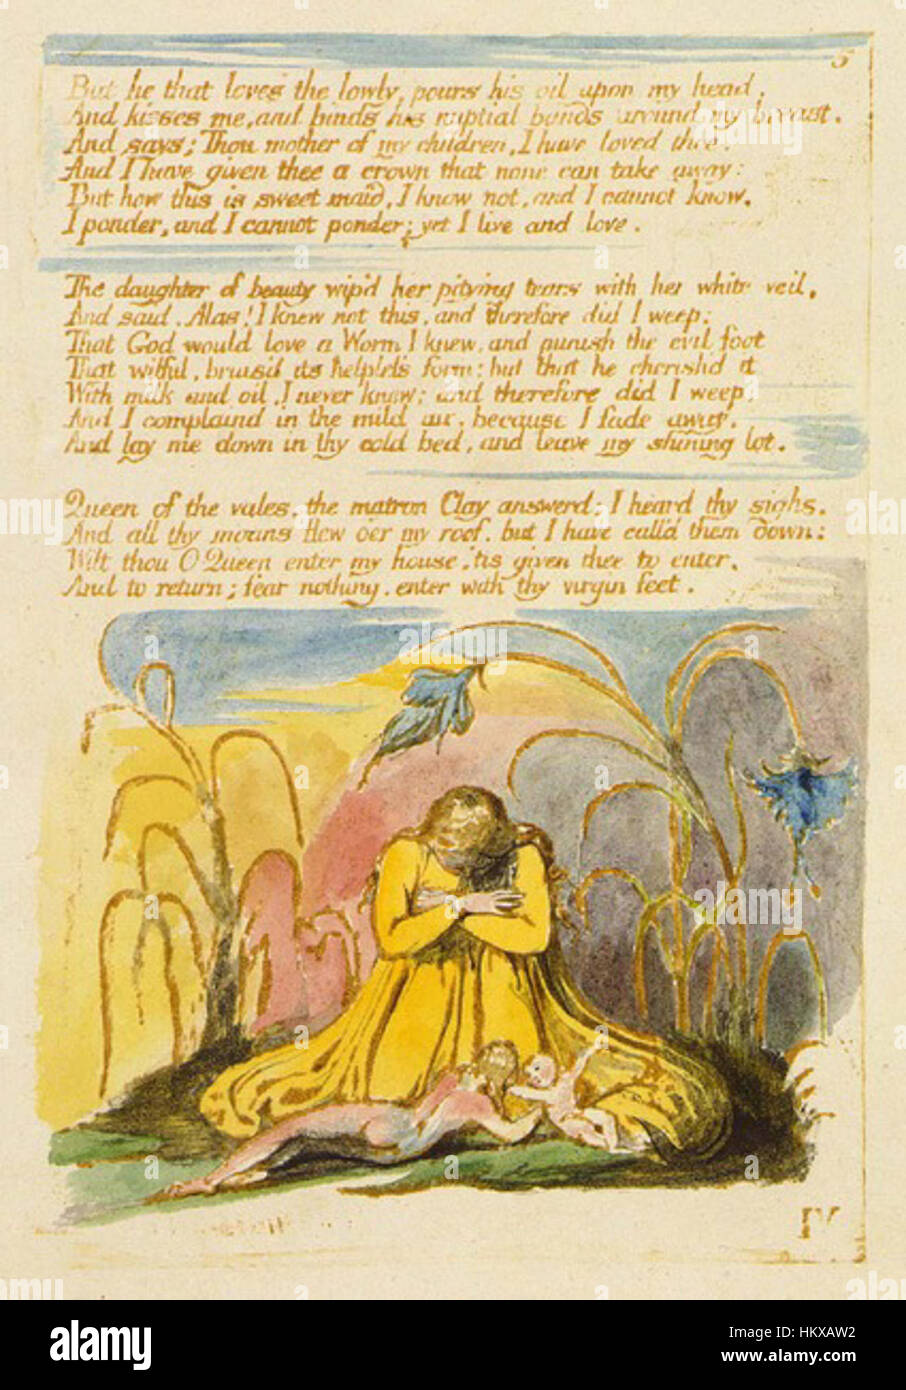 5
But he that loves the lowly, pours his oil upon my head,
And kisses me, and binds his nuptial bands around my breast.
And says; Thou mother of my children, I have loved thee.
And I have given thee a crown that none can take away:
But how this is sweet maid, I know not, and I cannot know,
I ponder, and I cannot ponder; yet I live and love.
The daughter of beauty wip'd her pitying tears with her white veil,
And said. Alas! I knew not this, and therefore did I weep:
That God would love a Worm I knew, and punish the evil foot
That wilful, bruis'd its helpless form: but that he cherish'd it
With milk and oil, I never knew; and therefore did I weep,
And I complaind in the mild air, because I fade away,
And lay me down in thy cold bed, and leave my shining lot.
Queen of the vales, the matron Clay answerd; I heard thy sighs,
And all thy moans flew o'er my roof, but I have call'd them down:
Wilt thou O Queen enter my house, 'tis given thee to enter,
And to return; fear nothing, enter with thy virgin feet.
IV
alamy
alamy stock photo
HKXAW2
www.alamy.com